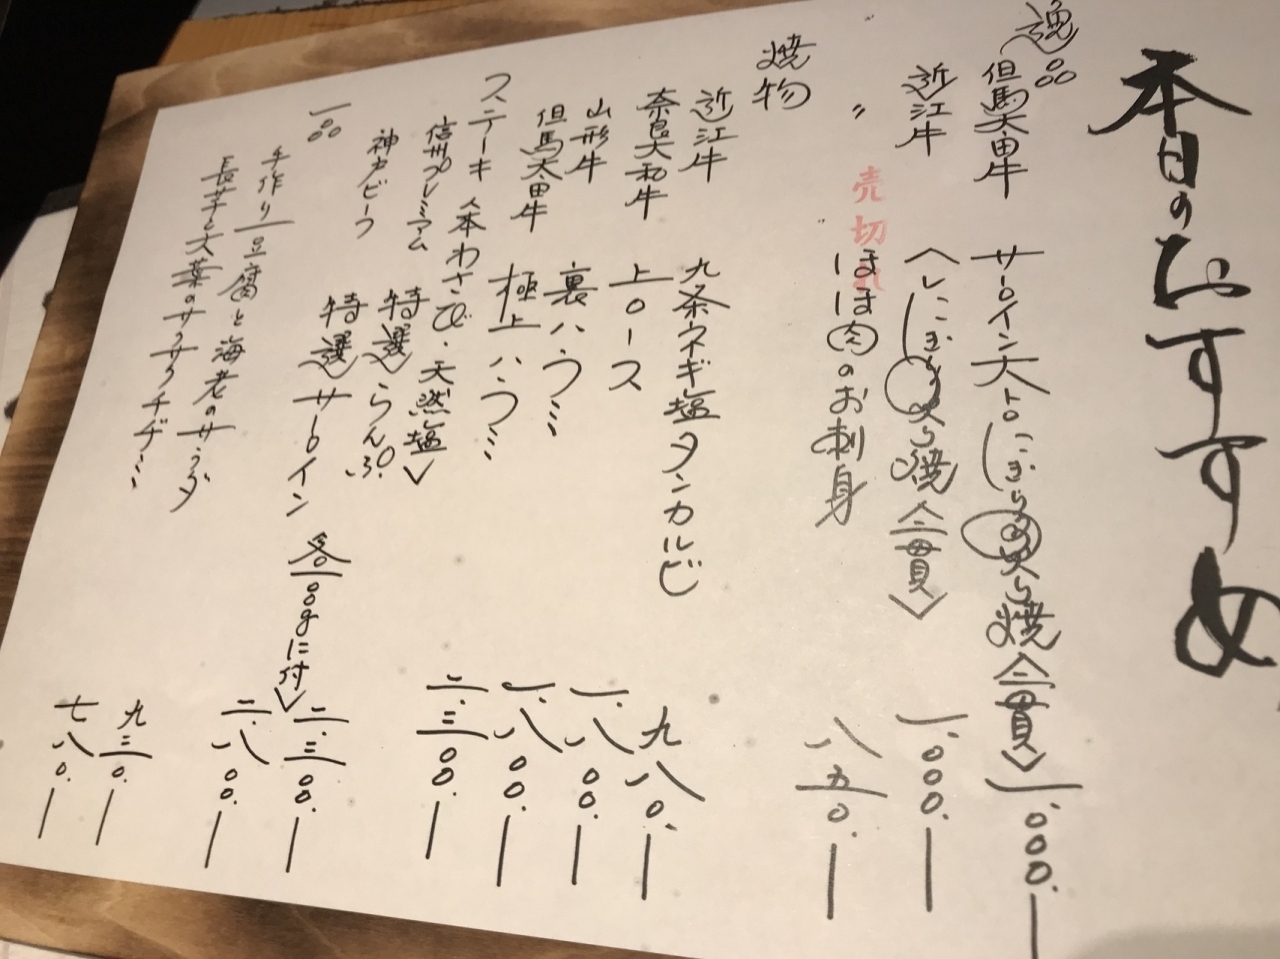 本日のおすすめ
逸品
但馬太田牛 サーロイン大トロにぎり 炙り焼 二貫〉 一、〇〇〇.
近江牛 ヘレにぎり 炙り焼 二貫〉 一、〇〇〇.
〃 ほほ肉のお刺身 八五〇.
売切れ
焼物
近江牛 九条ネギ塩タンカルビ 九八〇.
奈良大和牛 上ロース 一、八〇〇.
山形牛 裏ハラミ 一、八〇〇.
但馬太田牛 極上ハラミ 二、三〇〇.
ステーキ 本わさび・天然塩〉
信州プレミアム 特選らんぷ 二、三〇〇.
神戸ビーフ 特選サーロイン 二、八〇〇.
各一〇〇gに付〉
一品
手作り豆腐と海老のサラダ 九三〇.
長芋と大葉のサクサクチヂミ 七八〇.